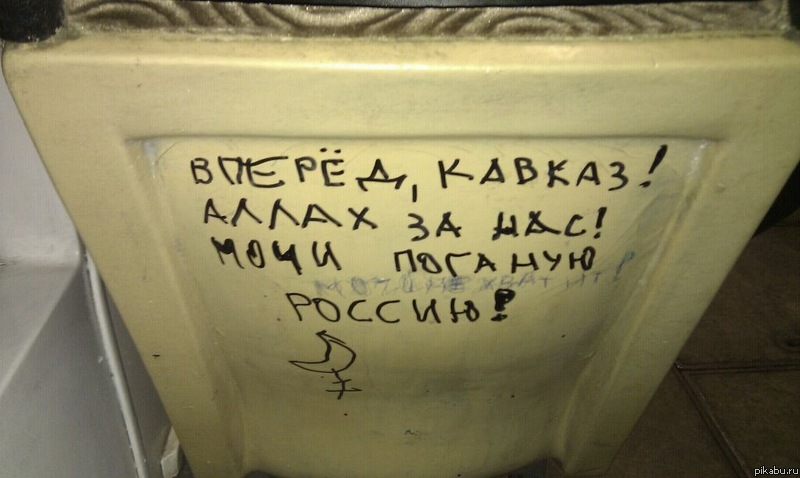 ВПЕРЁД, КАВКАЗ!
АЛЛАХ ЗА НАС!
МОЧИ ПОГАНУЮ
МОЧИ НЕ ХВАТИТ!
РОССИЮ!
pikabu.ru